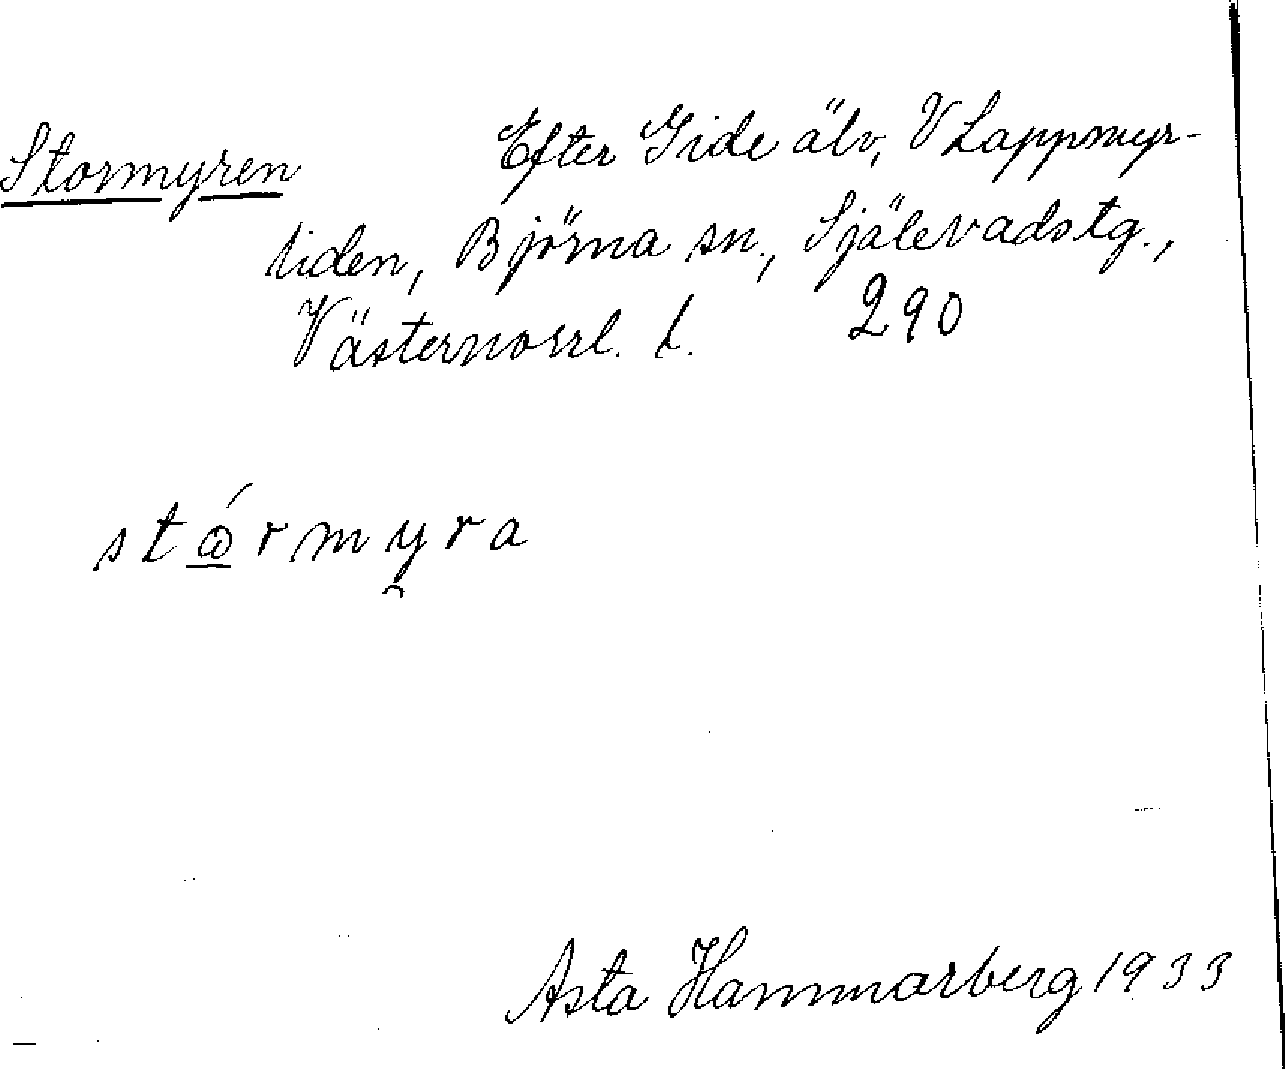 Stormyren Efter Gide älv, V Lappmyr-
liden, Björna sn., Själevads tg.,
Västernorrl. l. 290
stώ̲rmy̑ra
Asta Hammarberg 1933